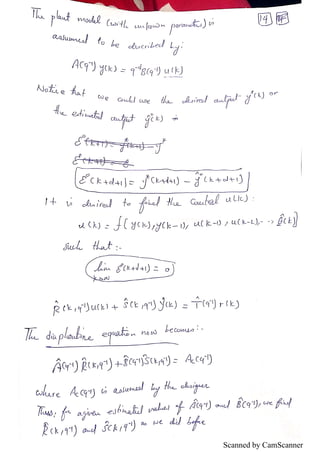 The plant model (with unknown parameters) is
14
assumed to be described by:
A(q⁻¹) y(k) = q⁻ᵈB(q⁻¹) u(k)
Notice that we could use the desired output y*(k) or
the estimated output ŷ(k) →
ε°(k+d+1) = y*(k+d+1) – ŷ°(k+d+1)
It is desired to find the control u(k):
u(k) = f[y(k), y(k-1), u(k-1), u(k-2), .., θ̂(k)]
such that :-
lim ε°(k+d+1) = 0
k→∞
R̂(k,q⁻¹)u(k) + Ŝ(k,q⁻¹) y(k) = T̂(q⁻¹) r(k)
The diophantine equation now becomes :-
Â(q⁻¹) R̂(k,q⁻¹) + B̂(q⁻¹)Ŝ(k,q⁻¹) = Ac(q⁻¹)
where Ac(q⁻¹) is assumed by the designer
Thus, for a given estimated values of Â(q⁻¹) and B̂(q⁻¹), we find
R̂(k,q⁻¹) and Ŝ(k,q⁻¹) as we did before
Scanned by CamScanner